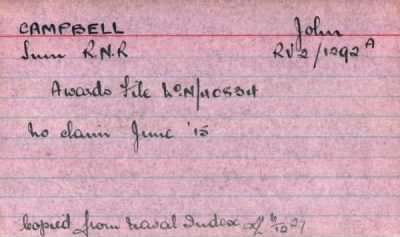 CAMPBELL John
Smn R.N.R RV2/1292 A
Awards File No. N/40834
No claim June '15
Copied from Naval Index 6/12/27